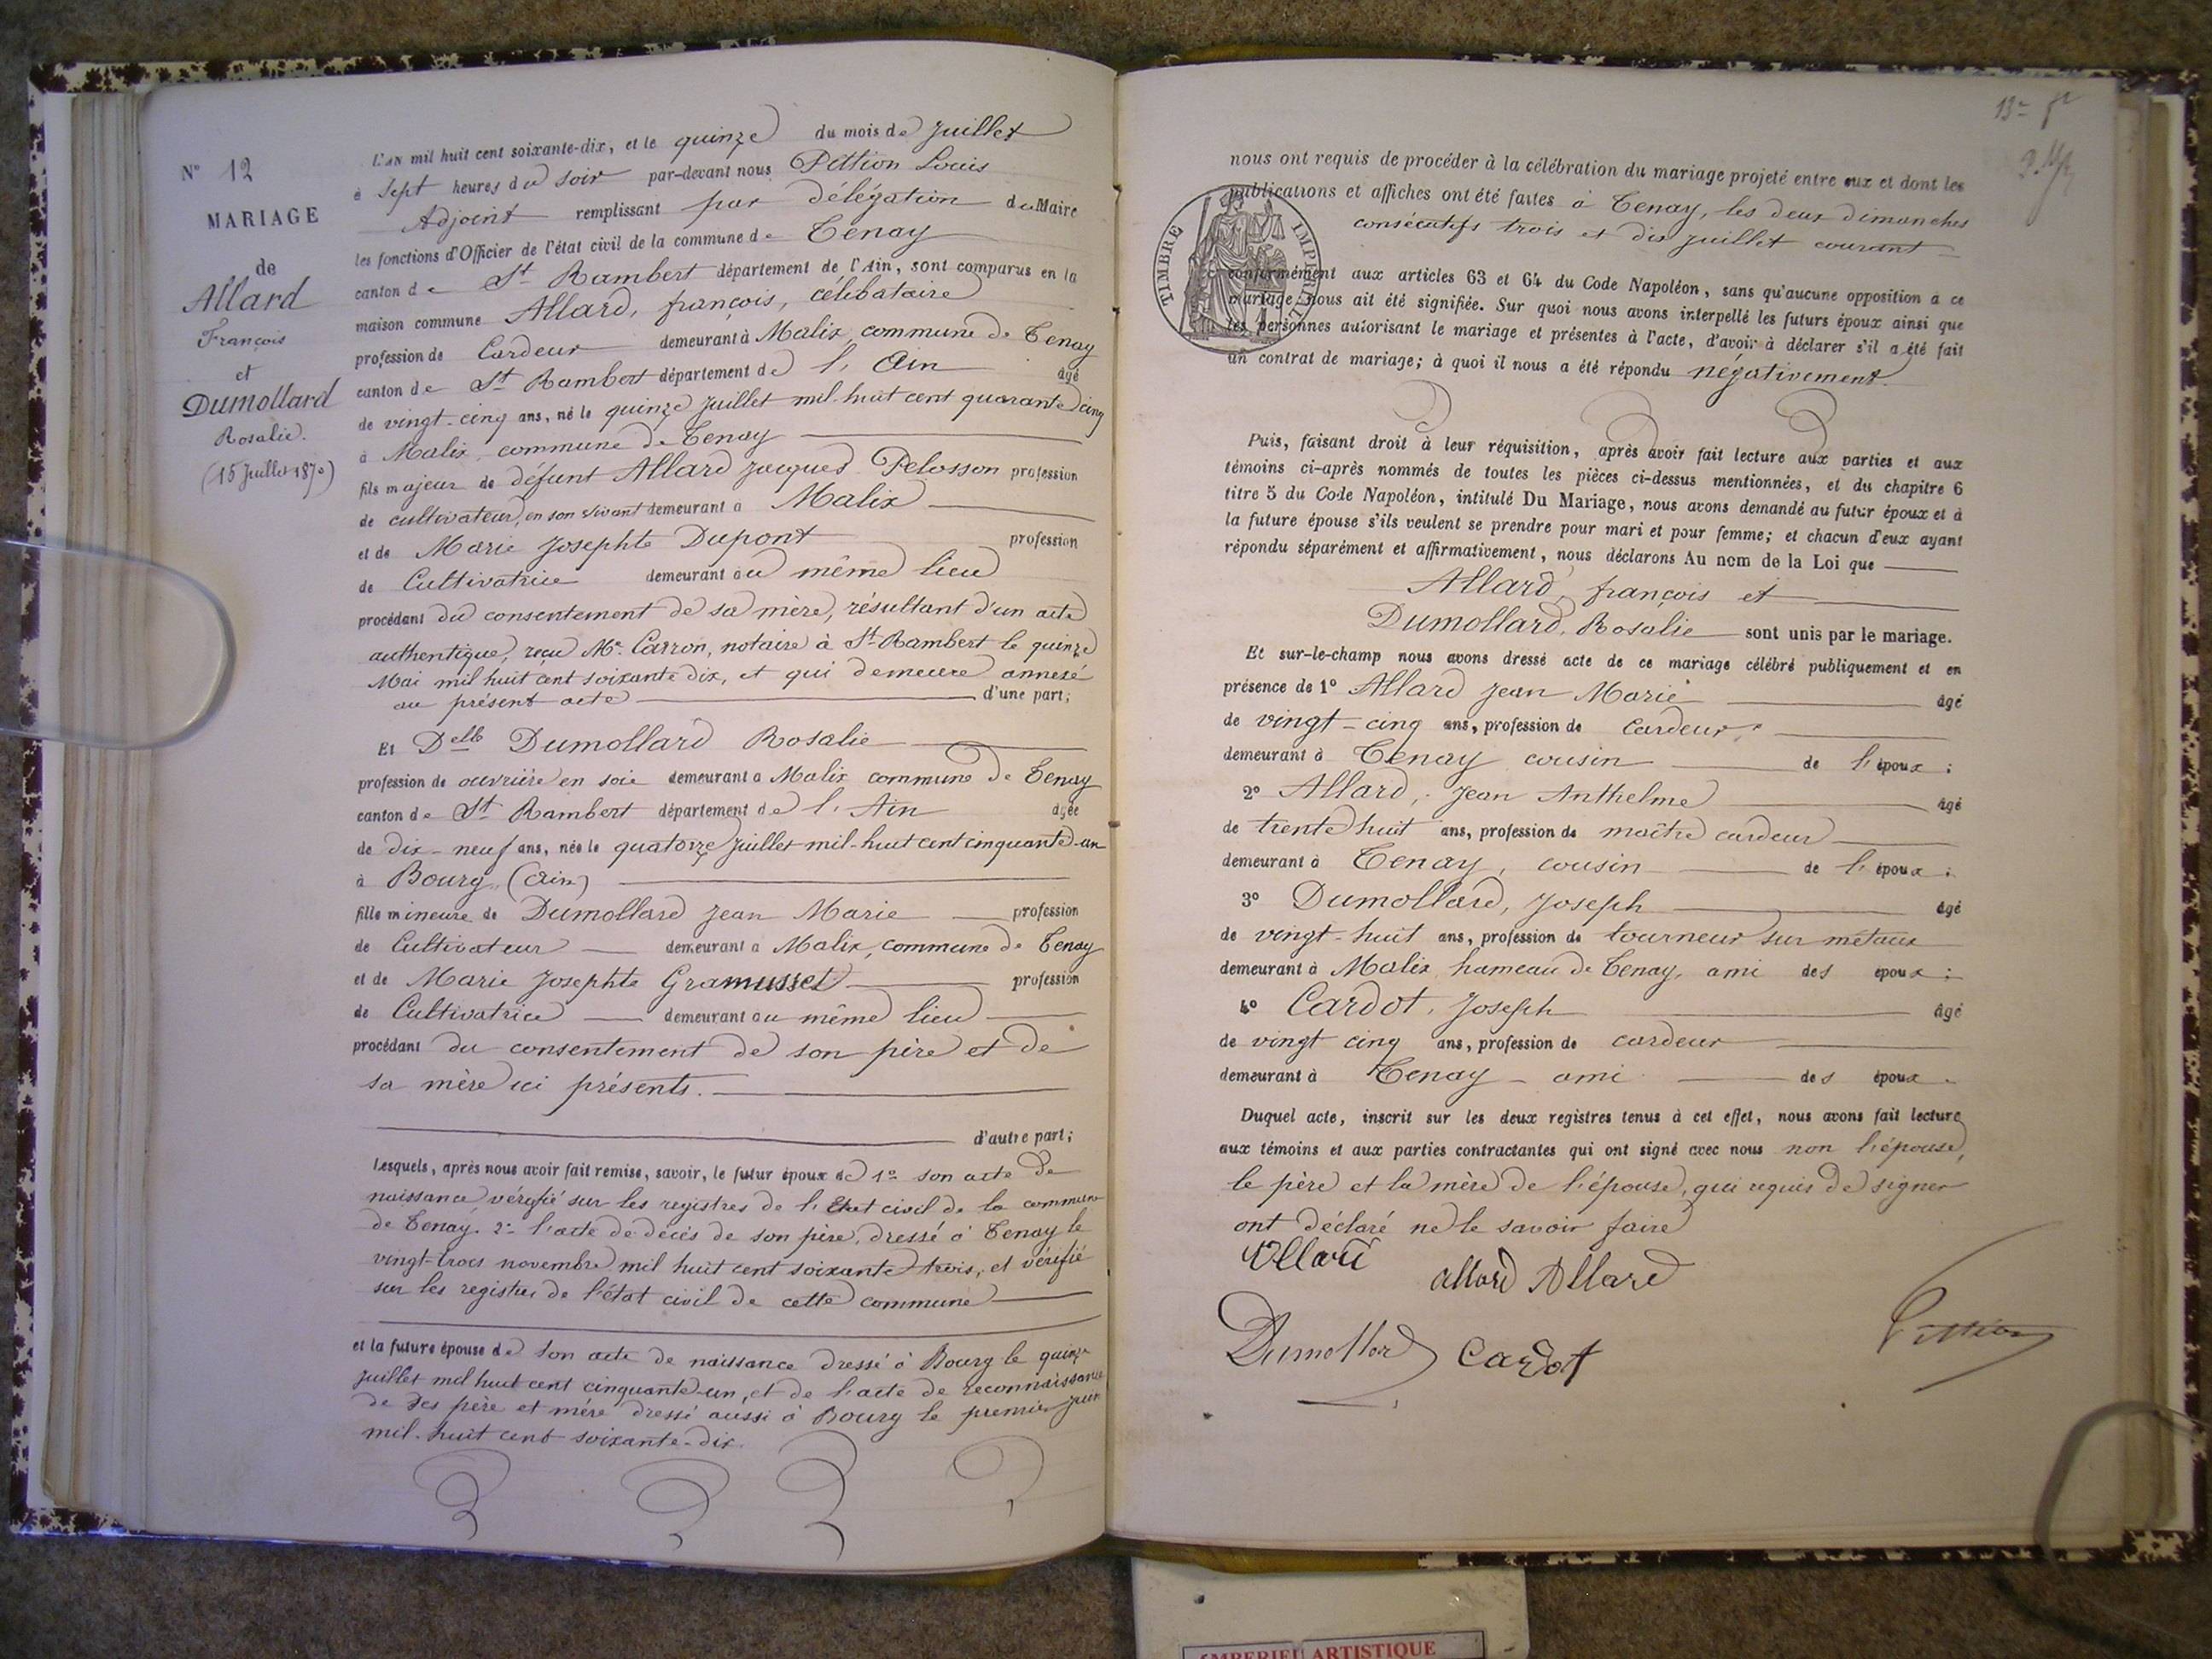 N° 12
MARIAGE
de
Allard
François
et
Dumollard
Rosalie.
(15 Juillet 1870)
L'AN mil huit cent soixante-dix, et le quinze du mois de Juillet
à Sept heures du soir par-devant nous Pittion Louis
Adjoint remplissant par délégation du Maire
les fonctions d'Officier de l'état civil de la commune de Tenay
canton de St Rambert département de l'Ain, sont comparus en la
maison commune Allard, françois, célibataire
profession de Cardeur demeurant à Malix, commune de Tenay
canton de St Rambert département de l'Ain âgé
de vingt-cinq ans, né le quinze Juillet mil-huit cent quarante cinq
à Malix, commune de Tenay
fils majeur de défunt Allard Jacques Pelosson profession
de cultivateur, en son vivant demeurant à Malix
et de Marie Josephte Dupont profession
de Cultivatrice demeurant au même lieu
procédant du consentement de sa mère, résultant d'un acte
authentique, reçu Me Carron, notaire à St-Rambert le quinze
Mai mil huit cent soixante dix, et qui demeure annexé
au présent acte d'une part;
Et Delle Dumollard Rosalie
profession de ouvrière en soie demeurant à Malix commune de Tenay
canton de St Rambert département de l'Ain âgée
de dix-neuf ans, née le quatorze Juillet mil-huit cent cinquante-un
à Bourg (Ain)
fille mineure de Dumollard Jean Marie profession
de Cultivateur demeurant à Malix, commune de Tenay
et de Marie Josephte Gramusset profession
de Cultivatrice demeurant au même lieu
procédant du consentement de son père et de
sa mère ici présents.
d'autre part;
Lesquels, après nous avoir fait remise, savoir, le futur époux de 1° son acte de
naissance vérifié sur les registres de l'Etat civil de la commune
de Tenay. 2° l'acte de décès de son père, dressé à Tenay le
vingt-trois novembre mil huit cent soixante trois, et vérifié
sur les registres de l'état civil de cette commune
et la future épouse de son acte de naissance dressé à Bourg le quinze
juillet mil huit cent cinquante-un, et de l'acte de reconnaissance
de ses père et mère dressé aussi à Bourg le premier juin
mil-huit cent soixante-dix.
13e
nous ont requis de procéder à la célébration du mariage projeté entre eux et dont les
publications et affiches ont été faites à Tenay, les deux dimanches
consécutifs trois et dix juillet courant
TIMBRE IMPERIAL
conformément aux articles 63 et 64 du Code Napoléon, sans qu'aucune opposition à ce
mariage nous ait été signifiée. Sur quoi nous avons interpellé les futurs époux ainsi que
les personnes autorisant le mariage et présentes à l'acte, d'avoir à déclarer s'il a été fait
un contrat de mariage; à quoi il nous a été répondu négativement.
Puis, faisant droit à leur réquisition, après avoir fait lecture aux parties et aux
témoins ci-après nommés de toutes les pièces ci-dessus mentionnées, et du chapitre 6
titre 5 du Code Napoléon, intitulé Du Mariage, nous avons demandé au futur époux et à
la future épouse s'ils veulent se prendre pour mari et pour femme; et chacun d'eux ayant
répondu séparément et affirmativement, nous déclarons Au nom de la Loi que
Allard, françois et
Dumollard, Rosalie sont unis par le mariage.
Et sur-le-champ nous avons dressé acte de ce mariage célébré publiquement et en
présence de 1° Allard Jean Marie âgé
de vingt-cinq ans, profession de cardeur
demeurant à Tenay cousin de l'époux;
2° Allard, Jean Anthelme âgé
de trente huit ans, profession de maître cardeur
demeurant à Tenay, cousin de l'époux;
3° Dumollard, Joseph âgé
de vingt-huit ans, profession de tourneur sur métaux
demeurant à Malix hameau de Tenay, ami des époux;
4° Cardot, Joseph âgé
de vingt cinq ans, profession de cardeur
demeurant à Tenay - ami des époux.
Duquel acte, inscrit sur les deux registres tenus à cet effet, nous avons fait lecture
aux témoins et aux parties contractantes qui ont signé avec nous non l'épouse,
le père et la mère de l'épouse, qui requis de signer
ont déclaré ne le savoir faire
Allard
allard Allard
Dumollard Cardot
Pittion
AMBERIEU ARTISTIQUE